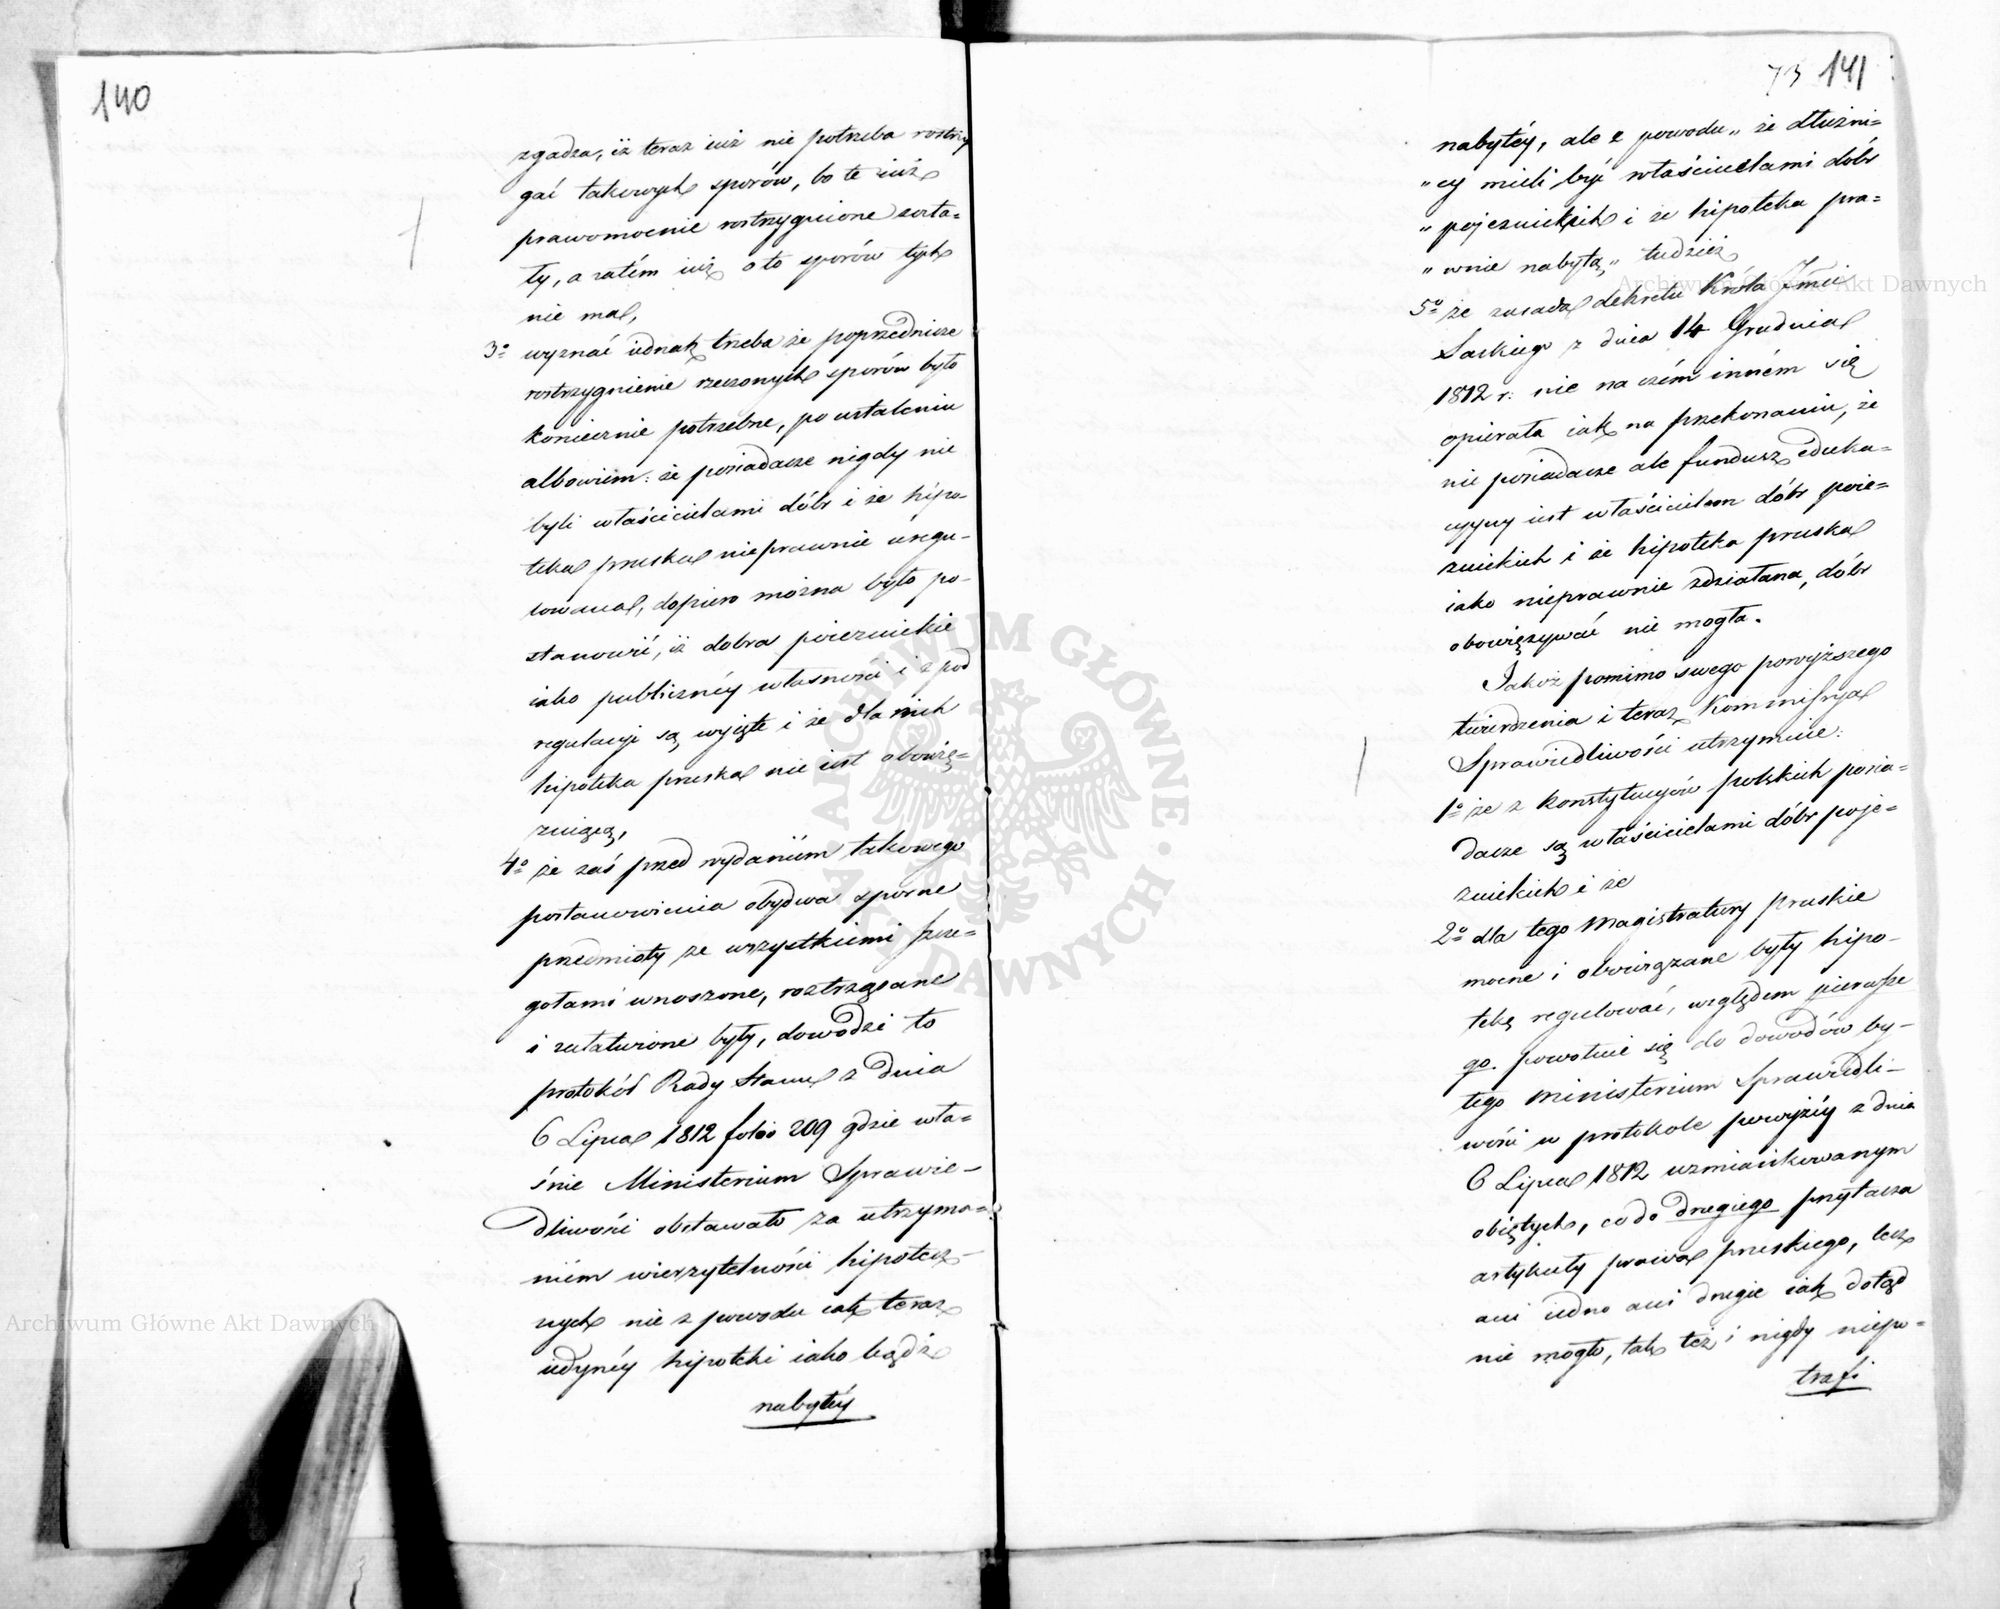 140
zgadza, iż teraz iuż nie potrzeba rostrzy
gać takowych sporów, bo te iuż
prawomocnie rostrzygnione zosta=
ły, a zatém iuż o to sporów tych
nie ma,
3o wyznać iednak trzeba że poprzednicze
rostrzygnienie rzeczonych sporów było
koniecznie potrzebne, po ustaleniu
albowiem: że posiadacze nigdy nie
byli właścicielami dóbr i że hipo-
teka pruska nieprawnie uregu-
lowana, dopiero można było po-
stanowić, iż dobra poiezuickie
iako publicznéy własności i z pod
regulacyi są wyięte i że dla nich
hipoteka pruska nie iest obowię=
zuiącą,
4o że zaś przed wydaniém takowego
postanowienia obydwa sporne
przedmioty ze wszystkiemi szcze=
gółami wnoszone, roztrząsane
i załatwione były, dowodzi to
protokół Rady Stanu z dnia
6 Lipca 1812 folio 209 gdzie wła=
śnie Ministerium Sprawie-
dliwości obstawało za utrzyma=
niém wierzytelności hipotecz-
nych nie z powodu iak teraz
iedynéy hipoteki iako bądź
nabytéy
73 141
nabytéy, ale z powodu „ że dłużni=
„ cy mieli być właścicielami dóbr
„ pojezuickich i że hipoteka pra=
„ wnie nabyta „ tudzież
5o że zasada dekretu Króla Jmci
Saskiego z dnia 14 Grudnia
1812 r: nie na czém inném się
opierała iak na przekonaniu, że
nie posiadacze ale fundusz eduka=
cyjny iest właścicielem dóbr poie=
zuickich i że hipoteka pruska
iako nieprawnie zdziałana, dóbr
obowięzywać nie mogła.
Jakoż pomimo swego powyższego
twierdzenia i teraz Kommissyja
Sprawiedliwości utrzymuie:
1o że z konstytucyów polskich posia=
dacze są właścicielami dóbr poje=
zuickich i że
2o dla tego Magistratury pruskie
mocne i obowiązane były hipo-
tekę regulować, względem pierwsze
go. powołuie się do dowodów by-
łego Ministerium Sprawiedli-
wości w protokole powyżéy z dnia
6 Lipca 1812 wzmiankowanym
obiętych, co do drugiego przytacza
artykuły prawa pruskiego, lecz
ani iedno ani drugie iak dotąd
nie mogło, tak też i nigdy niepo=
trafi
Archiwum Główne Akt Dawnych
Archiwum Główne Akt Dawnych
ARCHIWUM GŁÓWNE AKT DAWNYCH